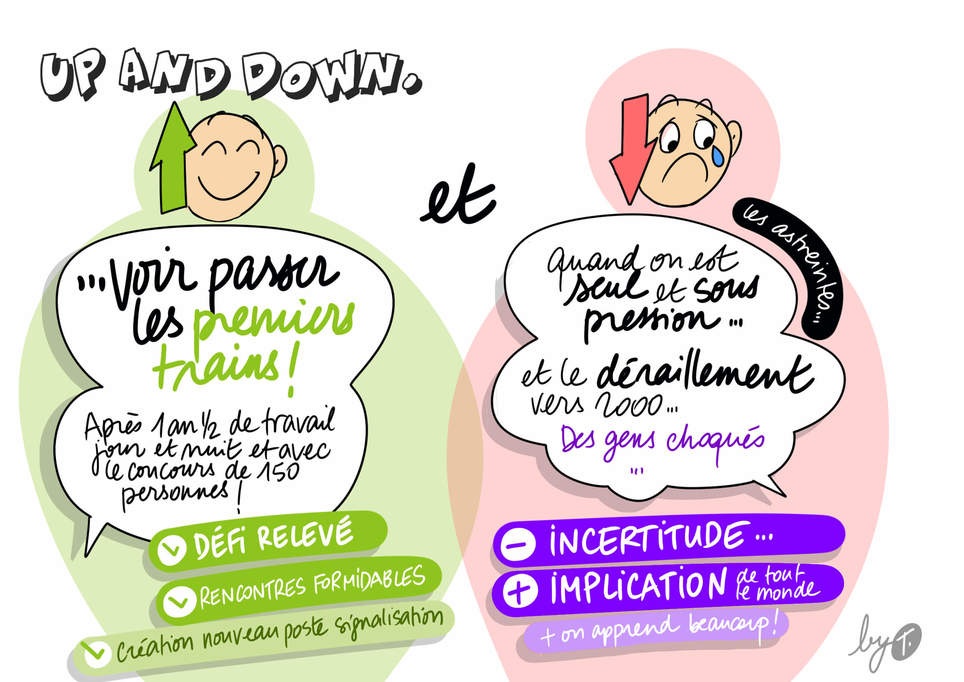 UP AND DOWN.
et
...Voir passer
les premiers
trains!
Après 1 an ½ de travail
jour et nuit et avec
le concours de 150
personnes!
DÉFI RELEVÉ
RENCONTRES FORMIDABLES
Création nouveau poste signalisation
les astreintes...
Quand on est
seul et sous
pression...
et le déraillement
vers 2000...
Des gens choqués
...
- INCERTITUDE...
+ IMPLICATION de tout
le monde
+ on apprend beaucoup!
by T.